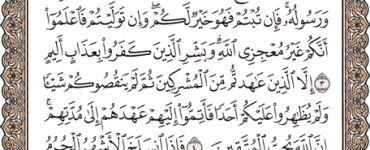 وَرَسُولُهُۥ ۚ فَإِن تُبْتُمْ فَهُوَ خَيْرٌ لَّكُمْ ۖ وَإِن تَوَلَّيْتُمْ فَٱعْلَمُوٓا۟
أَنَّكُمْ غَيْرُ مُعْجِزِى ٱللَّهِ ۗ وَبَشِّرِ ٱلَّذِينَ كَفَرُوا۟ بِعَذَابٍ أَلِيمٍ
٣ إِلَّا ٱلَّذِينَ عَٰهَدتُّم مِّنَ ٱلْمُشْرِكِينَ ثُمَّ لَمْ يَنقُصُوكُمْ شَيْـًٔا
وَلَمْ يُظَٰهِرُوا۟ عَلَيْكُمْ أَحَدًا فَأَتِمُّوٓا۟ إِلَيْهِمْ عَهْدَهُمْ إِلَىٰ مُدَّتِهِمْ ۚ
إِنَّ ٱللَّهَ يُحِبُّ ٱلْمُتَّقِينَ ٤ فَإِذَا ٱنسَلَخَ ٱلْأَشْهُرُ ٱلْحُرُمُ